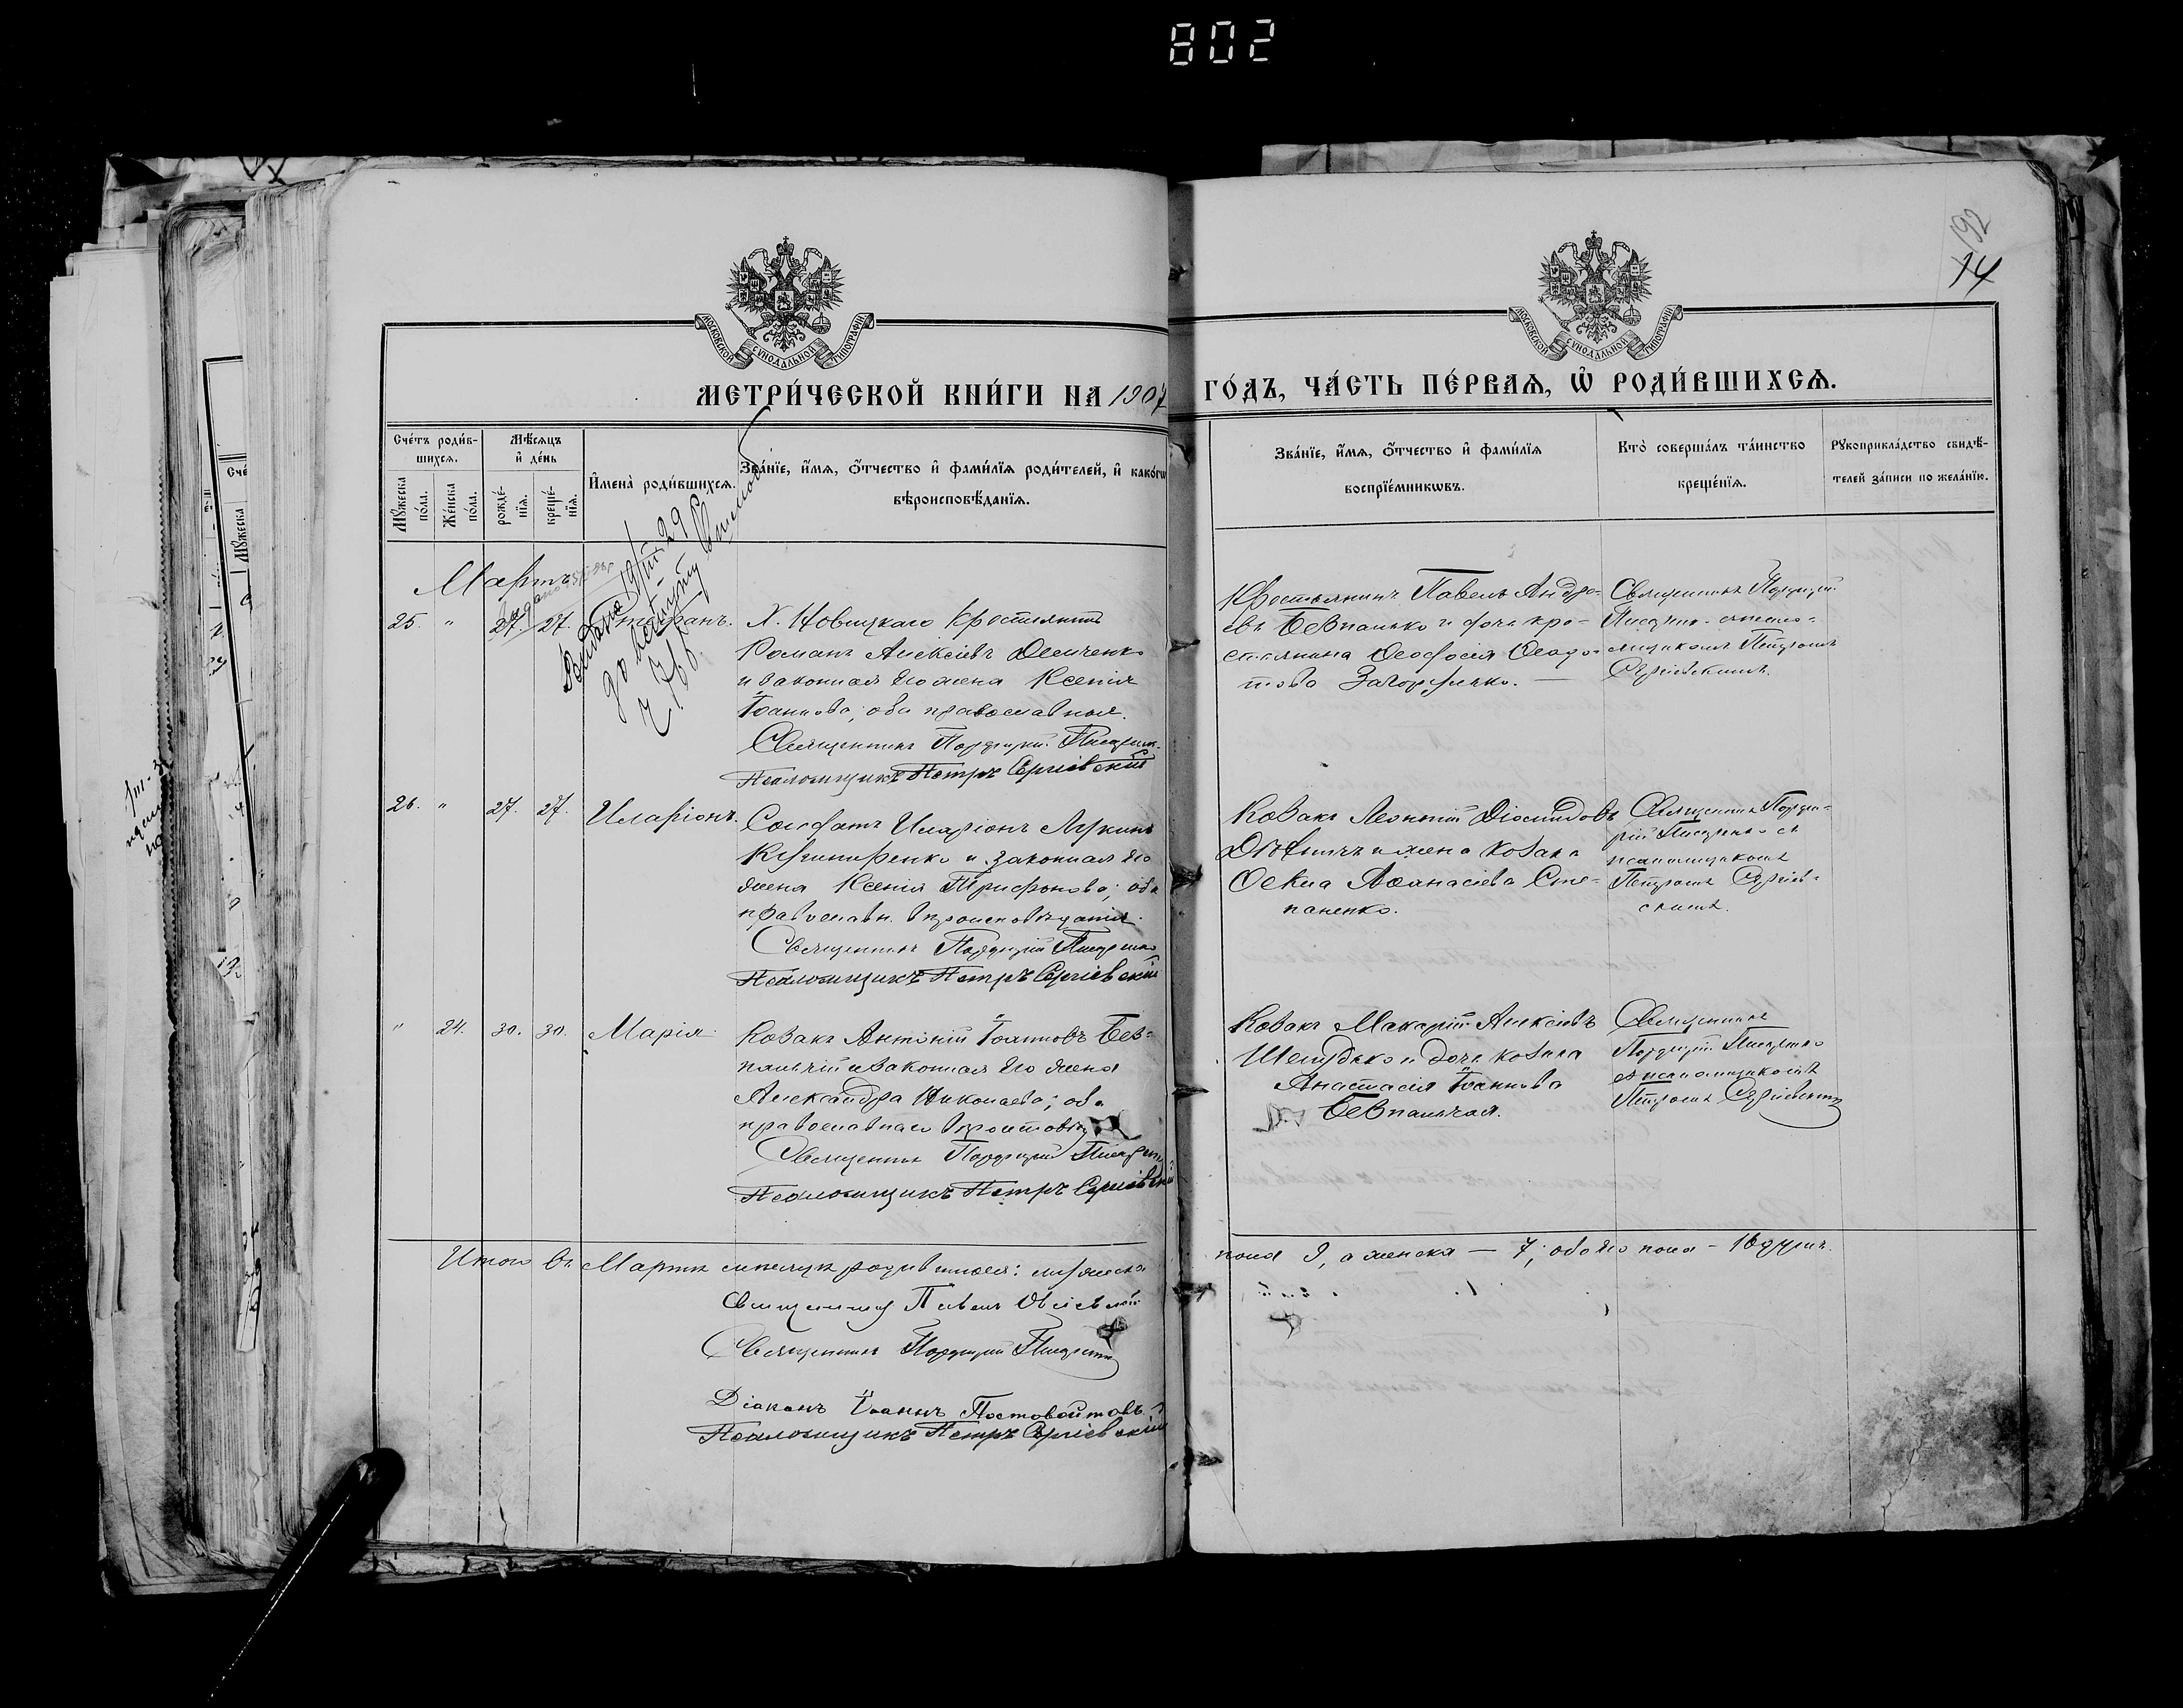 802
192
14
МОСКОВСКОЙ СѴНОДАЛЬНОЙ ТИПОГРАФІИ
МОСКОВСКОЙ СѴНОДАЛЬНОЙ ТИПОГРАФІИ
МЕТРИ́ЧЕСКОЙ КНИ́ГИ НА 1907
ГО́ДЪ, ЧА́СТЬ ПЕ́РВАЯ, Ѡ҆ РОДИ́ВШИХСЯ.
Сче́тъ роди́в-
шихся.
Мѣ́сяцъ
и҆ де́нь
Мꙋ́жеска по́ла.
Же́нска по́ла.
рожде́-
нїя.
креще́-
нїя.
И҆мена̀ роди́вшихся.
Зва́нїе, и҆́мя, ѻ҆́тчество и҆ фами́лїя роди́телей, и҆ како́гѡ
вѣроисповѣ́данїя.
Зва́нїе, и҆́мя, ѻ҆́тчество и҆ фами́лїя
воспрїе́мникѡвъ.
Кто̀ соверша́лъ та́инство
креще́нїя.
Рꙋкоприкла́дство свидѣ́-
телей за́писи по жела́нїю.
Мартъ
Выдано 19/III 29
25. " 27. 27. Стефанъ.
Х. Новицкаго крестьянинъ
Романъ Алексіевъ Демченко
и законная его жена Ксенія
Іоаннова, оба православныя.
Священникъ Порфирій
Псаломщикъ Петръ Сергіевскій
Крестьянинъ Павелъ Андре-
евъ Безпалько и дочь кре-
стьянина Ѳеодосія Ѳеодо-
това
Священникъ Порфирій
съ псало-
мщикомъ Петромъ
Сергіевскимъ.
26. " 27. 27. Иларіонъ.
Солдатъ Иларіонъ Лукинъ
и законная его
жена Ксенія Трифонова; оба
православн. вѣроисповѣданія.
Священникъ Порфирій
Псаломщикъ Петръ Сергіевскій
Козакъ Леонтій Діомидовъ
и жена козака
Ѳекла Аѳанасіева Сте-
паненко.
Священникъ Порфи-
рій съ
псаломщикомъ
Петромъ Сергіев-
скимъ.
" 24. 30. 30. Марія
Козакъ Антоній Іоанновъ Без-
палчій и законная его жена
Александра Николаева; оба
православнаго
Священникъ Порфирій
Псаломщикъ Петръ Сергіевскій
Козакъ Макарій Алексіевъ
Шелудько и дочь козака
Анастасія Іоаннова
Безпалчая.
Священникъ
Порфирій
съ псаломщикомъ
Петромъ Сергіевскимъ
Итого въ Мартѣ мѣсяцѣ родившихся: мужеска
пола 9, а женска — 7; обоего пола — 16 душъ.
Священникъ Павелъ
Священникъ Порфирій
Діаконъ Іоаннъ Постовойтовъ
Псаломщикъ Петръ Сергіевскій